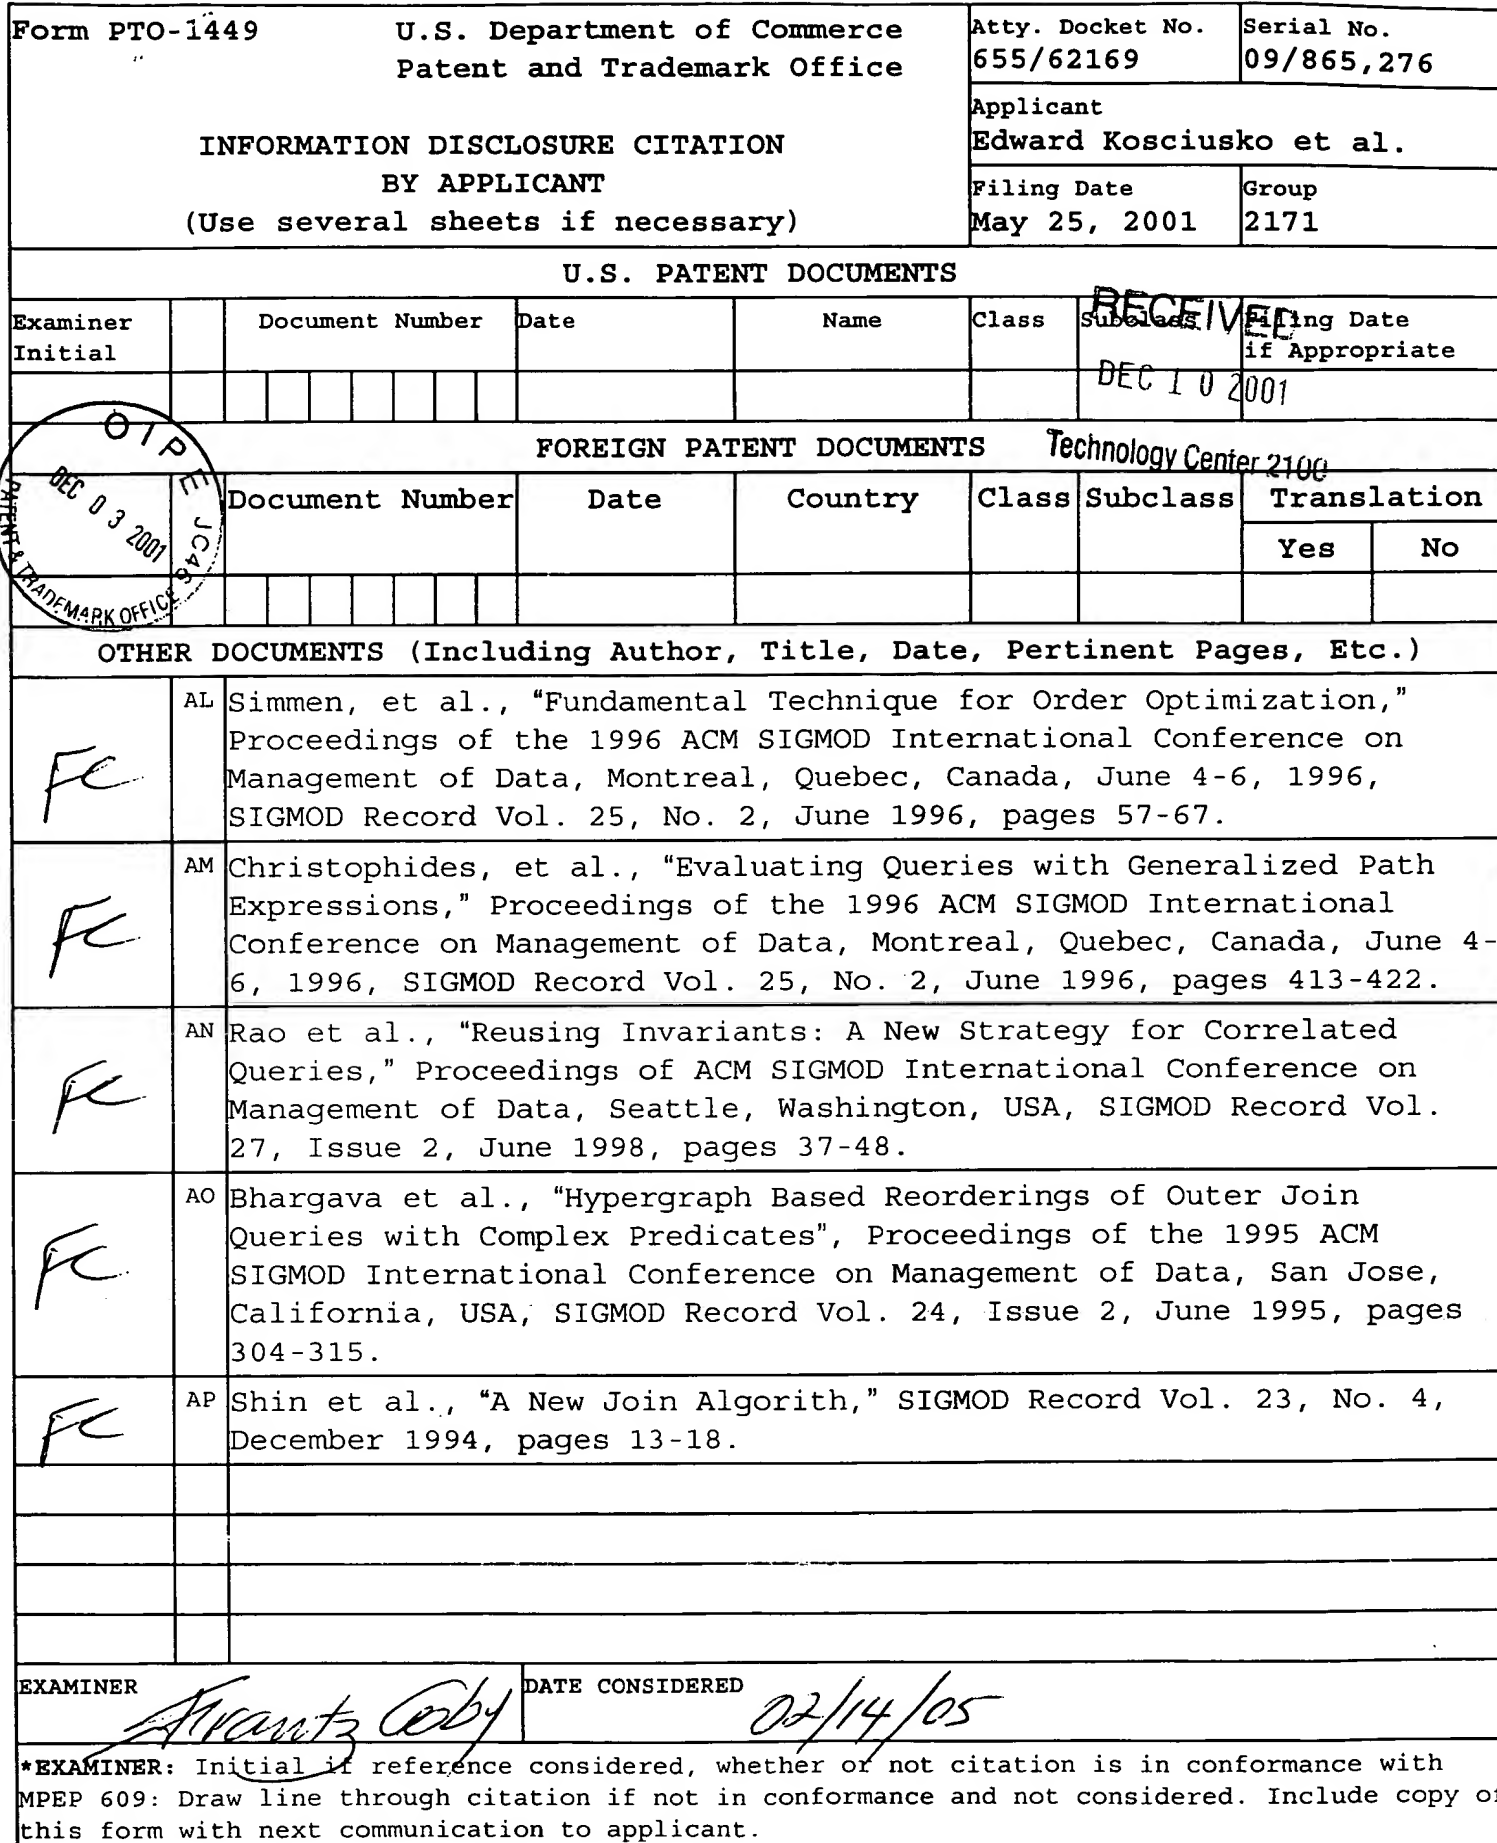 Form PTO-1449
U.S. Department of Commerce
Patent and Trademark Office
Atty. Docket No.
655/62169
Serial No.
09/865,276
INFORMATION DISCLOSURE CITATION
BY APPLICANT
(Use several sheets if necessary)
Applicant
Edward Kosciusko et al.
Filing Date
May 25, 2001
Group
2171
U.S. PATENT DOCUMENTS
Examiner
Initial
Document Number
Date
Name
Class
Subclass
Filing Date
if Appropriate
RECEIVED
DEC 10 2001
Technology Center 2100
OIPE JC46
DEC 03 2001
PATENT & TRADEMARK OFFICE
FOREIGN PATENT DOCUMENTS
Document Number
Date
Country
Class
Subclass
Translation
Yes
No
OTHER DOCUMENTS (Including Author, Title, Date, Pertinent Pages, Etc.)
FC
AL
Simmen, et al., "Fundamental Technique for Order Optimization,"
Proceedings of the 1996 ACM SIGMOD International Conference on
Management of Data, Montreal, Quebec, Canada, June 4-6, 1996,
SIGMOD Record Vol. 25, No. 2, June 1996, pages 57-67.
FC
AM
Christophides, et al., "Evaluating Queries with Generalized Path
Expressions," Proceedings of the 1996 ACM SIGMOD International
Conference on Management of Data, Montreal, Quebec, Canada, June 4-
6, 1996, SIGMOD Record Vol. 25, No. 2, June 1996, pages 413-422.
FC
AN
Rao et al., "Reusing Invariants: A New Strategy for Correlated
Queries," Proceedings of ACM SIGMOD International Conference on
Management of Data, Seattle, Washington, USA, SIGMOD Record Vol.
27, Issue 2, June 1998, pages 37-48.
FC
AO
Bhargava et al., "Hypergraph Based Reorderings of Outer Join
Queries with Complex Predicates", Proceedings of the 1995 ACM
SIGMOD International Conference on Management of Data, San Jose,
California, USA, SIGMOD Record Vol. 24, Issue 2, June 1995, pages
304-315.
FC
AP
Shin et al., "A New Join Algorith," SIGMOD Record Vol. 23, No. 4,
December 1994, pages 13-18.
EXAMINER
Coby
DATE CONSIDERED
02/14/05
*EXAMINER: Initial if reference considered, whether or not citation is in conformance with
MPEP 609: Draw line through citation if not in conformance and not considered. Include copy of
this form with next communication to applicant.